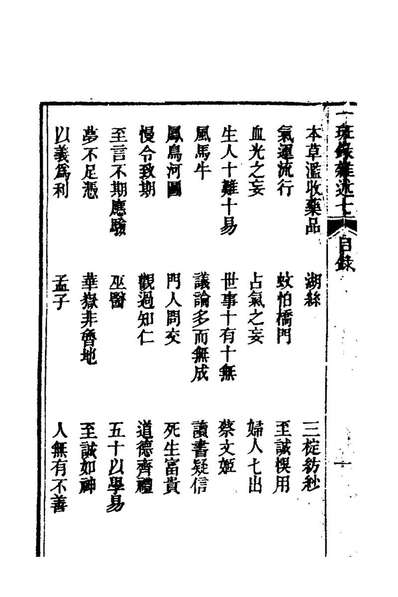 一斑錄雜述七 目錄 一
本草濫收藥品 湖絲 三椗紡紗
氣運流行 蚊怕橋門 至誠悞用
血光之妄 占氣之妄 婦人七出
生人十難十易 世事十有十無 蔡文姬
風馬牛 議論多而無成 讀書疑信
鳳鳥河圖 門人問交 死生富貴
慢令致期 觀過知仁 道德齊禮
至言不期應驗 巫醫 五十以學易
夢不足憑 華嶽非魯地 至誠如神
以義爲利 孟子 人無有不善